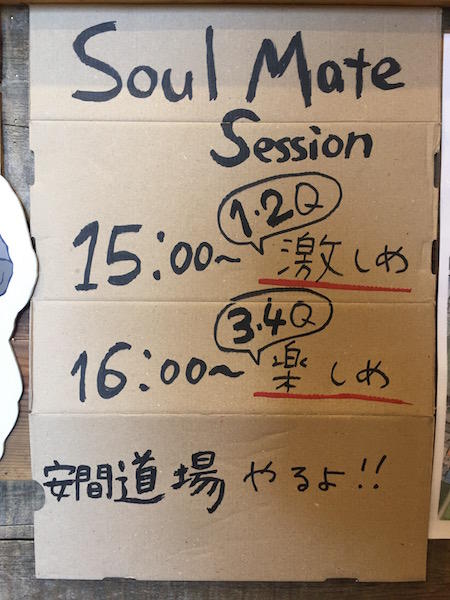 Soul Mate
Session
1・2Q
15:00~ 激しめ
3・4Q
16:00~ 楽しめ
安間道場 やるよ!!